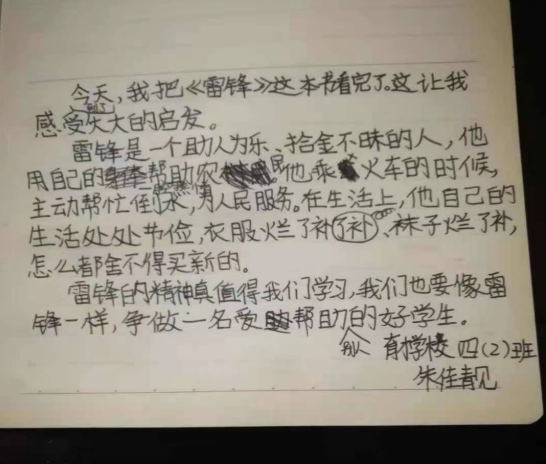 今天,我把《雷锋》这本书看完了。这让我
感受大大的启发。
雷锋是一个助人为乐、拾金不昧的人,他
用自己的帮助农民。他乘火车的时候,
主动帮忙倒水,为人民服务。在生活上,他自己的
生活处处节俭,衣服烂了补了补、袜子烂了补,
怎么都舍不得买新的。
雷锋的精神真值得我们学习,我们也要像雷
锋一样,争做一名爱帮助别人的好学生。
育才学校 四(2)班
朱佳靓